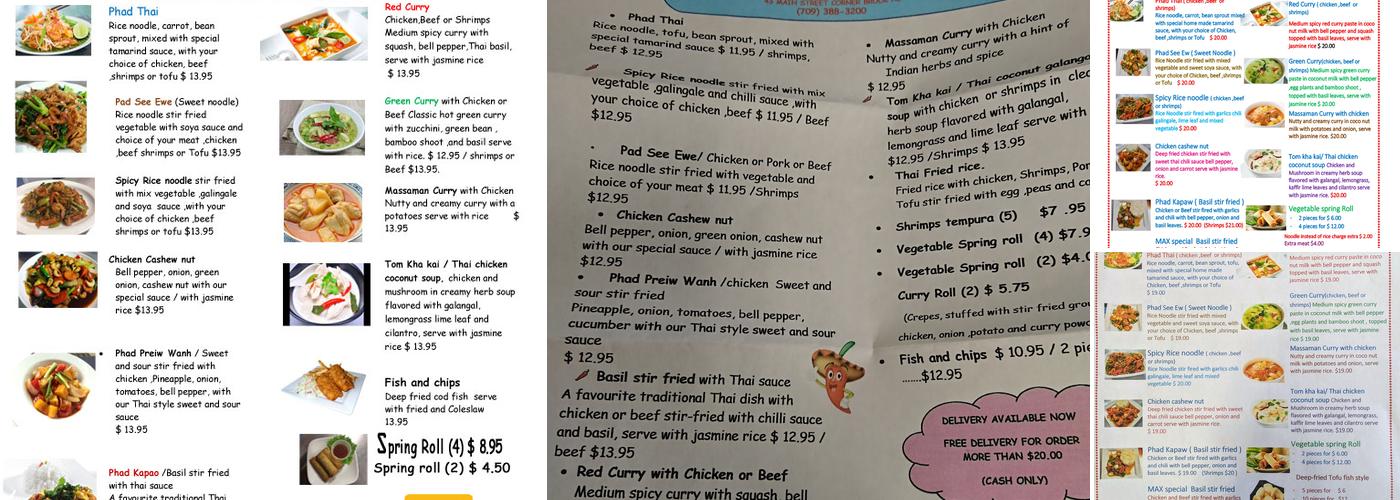 Phad Thai
Rice noodle, carrot, bean
sprout, mixed with special
tamarind sauce, with your
choice of chicken, beef
,shrimps or tofu $ 13.95
Pad See Ewe (Sweet noodle)
Rice noodle stir fried
vegetable with soya sauce and
choice of your meat ,chicken
,beef shrimps or Tofu $13.95
Spicy Rice noodle stir fried
with mix vegetable ,galingale
and soya sauce ,with your
choice of chicken ,beef
shrimps or tofu $13.95
Chicken Cashew nut
Bell pepper, onion, green
onion, cashew nut with our
special sauce / with jasmine
rice $13.95
• Phad Preiw Wanh / Sweet
and sour stir fried with
chicken ,Pineapple, onion,
tomatoes, bell pepper, with
our Thai style sweet and sour
sauce
$ 13.95
Phad Kapao /Basil stir fried
with thai sauce
A favourite traditional Thai
Red Curry
Chicken,Beef or Shrimps
Medium spicy curry with
squash, bell pepper,Thai basil,
serve with jasmine rice
$ 13.95
Green Curry with Chicken or
Beef Classic hot green curry
with zucchini, green bean ,
bamboo shoot ,and basil serve
with rice. $ 12.95 / shrimps or
Beef $13.95.
Massaman Curry with Chicken
Nutty and creamy curry with a
potatoes serve with rice $
13.95
Tom Kha kai / Thai chicken
coconut soup, chicken and
mushroom in creamy herb soup
flavored with galangal,
lemongrass lime leaf and
cilantro, serve with jasmine
rice $ 13.95
Fish and chips
Deep fried cod fish serve
with fried and Coleslaw
13.95
Spring Roll (4) $ 8.95
Spring roll (2) $ 4.50
43 MAIN STREET CORNER BROOK
(709) 388-3200
• Phad Thai
Rice noodle, tofu, bean sprout, mixed with
special tamarind sauce $ 11.95 / shrimps,
beef $ 12.95
Spicy Rice noodle stir fried with mix
vegetable ,galingale and chilli sauce ,with
your choice of chicken ,beef $ 11.95 / Beef
$12.95
• Pad See Ewe/ Chicken or Pork or Beef
Rice noodle stir fried with vegetable and
choice of your meat $ 11.95 /Shrimps
$12.95
• Chicken Cashew nut
Bell pepper, onion, green onion, cashew nut
with our special sauce / with jasmine rice
$12.95
• Phad Preiw Wanh /chicken Sweet and
sour stir fried
Pineapple, onion, tomatoes, bell pepper,
cucumber with our Thai style sweet and sour
sauce
$ 12.95
Basil stir fried with Thai sauce
A favourite traditional Thai dish with
chicken or beef stir-fried with chilli sauce
and basil, serve with jasmine rice $ 12.95 /
beef $13.95
• Red Curry with Chicken or Beef
Medium spicy curry with squash, bell
• Massaman Curry with Chicken
Nutty and creamy curry with a hint of
Indian herbs and spice
$ 12.95
Tom Kha kai / Thai coconut galanga
soup with chicken or shrimps in clea
herb soup flavored with galangal,
lemongrass and lime leaf serve with
$12.95 /Shrimps $ 13.95
• Thai Fried rice.
Fried rice with chicken, Shrimps, Por
Tofu stir fried with egg ,peas and ca
• Shrimps tempura (5) $7 .95
• Vegetable Spring roll (4) $7.9
• Vegetable Spring roll (2) $4.0
Curry Roll (2) $ 5.75
(Crepes, stuffed with stir fried grou
chicken, onion ,potato and curry powd
• Fish and chips $ 10.95 / 2 pie
.......$12.95
DELIVERY AVAILABLE NOW
FREE DELIVERY FOR ORDER
MORE THAN $20.00
(CASH ONLY)
Phad Thai ( chicken ,beef or
shrimps)
Rice noodle, carrot, bean sprout, mixed
with special home made
tamarind sauce, with your choice of
Chicken, beef ,shrimps or Tofu $ 20.00
Phad See Ew ( Sweet Noodle )
Rice Noodle stir fried with mixed
vegetable and sweet soya sauce, with
your choice of Chicken, beef ,shrimps
or Tofu $ 20.00
Spicy Rice noodle ( chicken ,beef
or shrimps)
Rice Noodle stir fried with garlics chili
galingale, lime leaf and mixed
vegetable $ 20.00
Chicken cashew nut
Deep fried chicken stir fried with
sweet thai chili sauce bell pepper,
onion and carrot serve with jasmine
rice.
$ 20.00
Phad Kapaw ( Basil stir fried )
Chicken or Beef stir fried with garlics
and chili with bell pepper, onion and
basil leaves. $ 20.00 (Shrimps $21.00)
MAX special Basil stir fried
Red Curry ( chicken, beef or
shrimps)
Medium spicy red curry paste in coco
nut milk with bell pepper and squash
topped with basil leaves, serve with
jasmine rice $ 20.00
Green Curry(chicken, beef or
shrimps) Medium spicy green curry
paste in coconut milk with bell pepper
,egg plants and bamboo shoot ,
topped with basil leaves, serve with
jasmine rice $ 20.00
Massaman Curry with chicken
Nutty and creamy curry in coco nut
milk with potatoes and onion, serve
with jasmine rice. $20.00
Tom kha kai/ Thai chicken
coconut soup Chicken and
Mushroom in creamy herb soup
flavored with galangal, lemongrass,
kaffir lime leaves and cilantro serve
with jasmine rice. $20.00
Vegetable spring Roll
- 2 pieces for $ 6.00
- 4 pieces for $ 12.00
Noodle instead of rice charge extra $ 2.00
Extra meat $4.00
Phad Thai ( chicken ,beef or shrimps)
Rice noodle, carrot, bean sprout, tofu,
mixed with special home made
tamarind sauce, with your choice of
Chicken, beef ,shrimps or Tofu
$ 19.00
Phad See Ew ( Sweet Noodle )
Rice Noodle stir fried with mixed
vegetable and sweet soya sauce, with
your choice of Chicken, beef ,shrimps
or Tofu $ 19.00
Spicy Rice noodle ( chicken ,beef
or shrimps)
Rice Noodle stir fried with garlics chili
galingale, lime leaf and mixed
vegetable $ 20.00
Chicken cashew nut
Deep fried chicken stir fried with sweet
thai chili sauce bell pepper, onion and
carrot serve with jasmine rice.
$ 19.00
Phad Kapaw ( Basil stir fried )
Chicken or Beef stir fried with garlics
and chili with bell pepper, onion and
basil leaves. $ 19.00 (Shrimps $20 )
MAX special Basil stir fried
Medium spicy red curry paste in coco
nut milk with bell pepper and squash
topped with basil leaves, serve with
jasmine rice $ 19.00
Green Curry(chicken, beef or
shrimps) Medium spicy green curry
paste in coconut milk with bell pepper
,egg plants and bamboo shoot , topped
with basil leaves, serve with jasmine
rice $ 19.00
Massaman Curry with chicken
Nutty and creamy curry in coco nut
milk with potatoes and onion, serve
with jasmine rice. $19.00
Tom kha kai/ Thai chicken
coconut soup Chicken and
Mushroom in creamy herb soup
flavored with galangal, lemongrass,
kaffir lime leaves and cilantro serve
with jasmine rice. $19.00
Vegetable spring Roll
- 2 pieces for $ 6.00
- 4 pieces for $ 12.00
Deep-fried Tofu fish style
- 5 pieces for $ 6